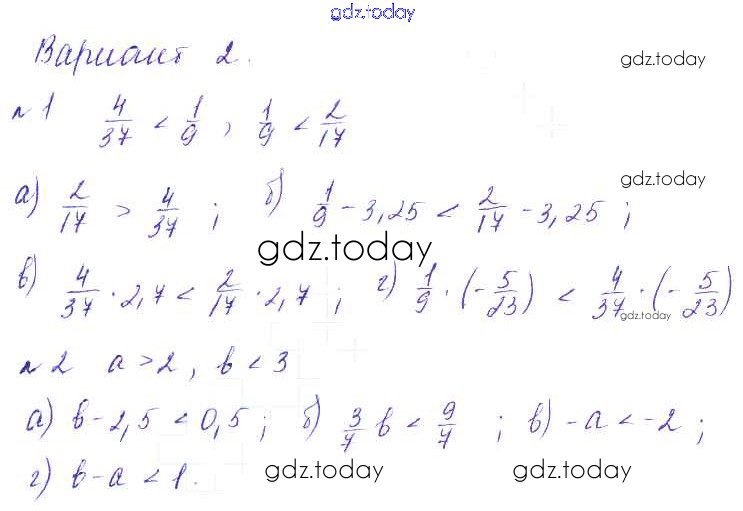 gdz.today
Вариант 2.
gdz.today
№1 4/37 < 1/9 , 1/9 < 2/17
gdz.today
а) 2/17 > 4/37 ; б) 1/9 - 3,25 < 2/17 - 3,25 ;
gdz.today
в) 4/37 · 2,7 < 2/17 · 2,7 ; г) 1/9 · (- 5/23) < 4/37 · (- 5/23)
gdz.today
№2 a > 2 , b < 3
а) b - 2,5 < 0,5 ; б) 3/7 b < 9/7 ; в) -a < -2 ;
г) b - a < 1.
gdz.today gdz.today